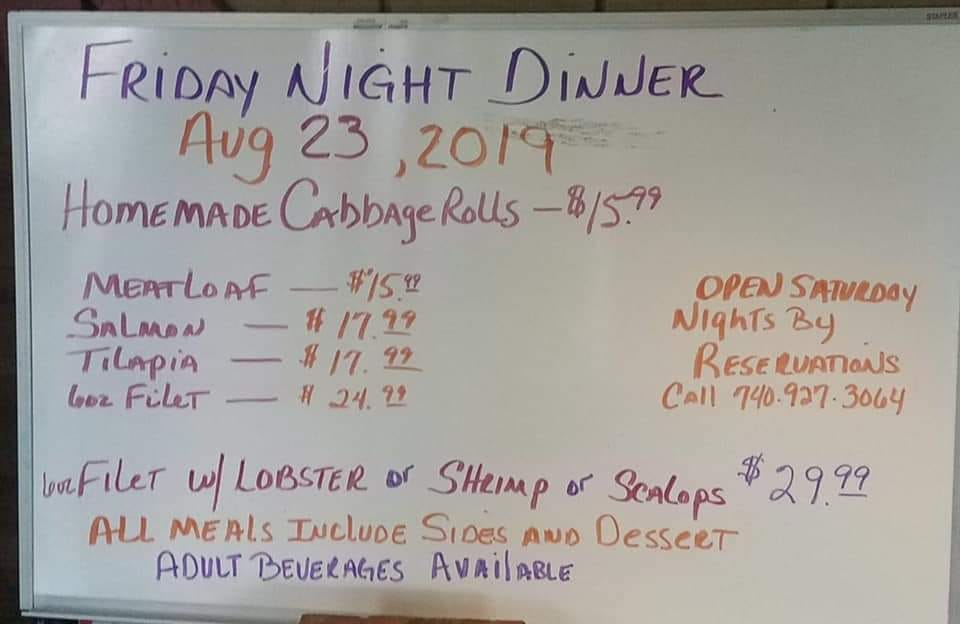 FRIDAY NIGHT DINNER
Aug 23, 2019
HOMEMADE CABBAGE ROLLS - $15.99
MEATLOAF — $15.99
SALMON — $17.99
TILAPIA — $17.99
6oz FILET — $24.99
OPEN SATURDAY
NIGHTS BY
RESERVATIONS
Call 740.927.3064
6oz FILET W/ LOBSTER or SHRIMP or SCALOPS $29.99
ALL MEALS INCLUDE SIDES AND DESSERT
ADULT BEVERAGES AVAILABLE
STAPLES